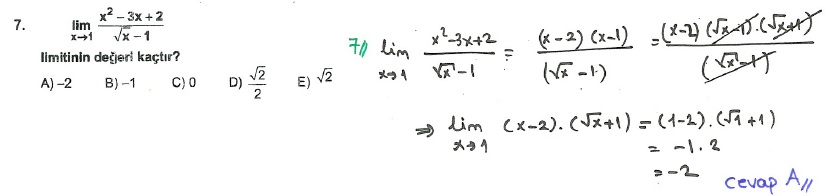 7. lim x→1 x² – 3x + 2 / √x – 1
limitinin değeri kaçtır?
A) –2 B) –1 C) 0 D) √2/2 E) √2
7// lim x→1 x²-3x+2 / √x -1 = (x-2) (x-1) / (√x -1) = (x-2) (√x-1).(√x+1) / (√x-1)
⇒ lim x→1 (x-2).(√x+1) = (1-2).(√1+1)
= -1.2
= -2
cevap A//